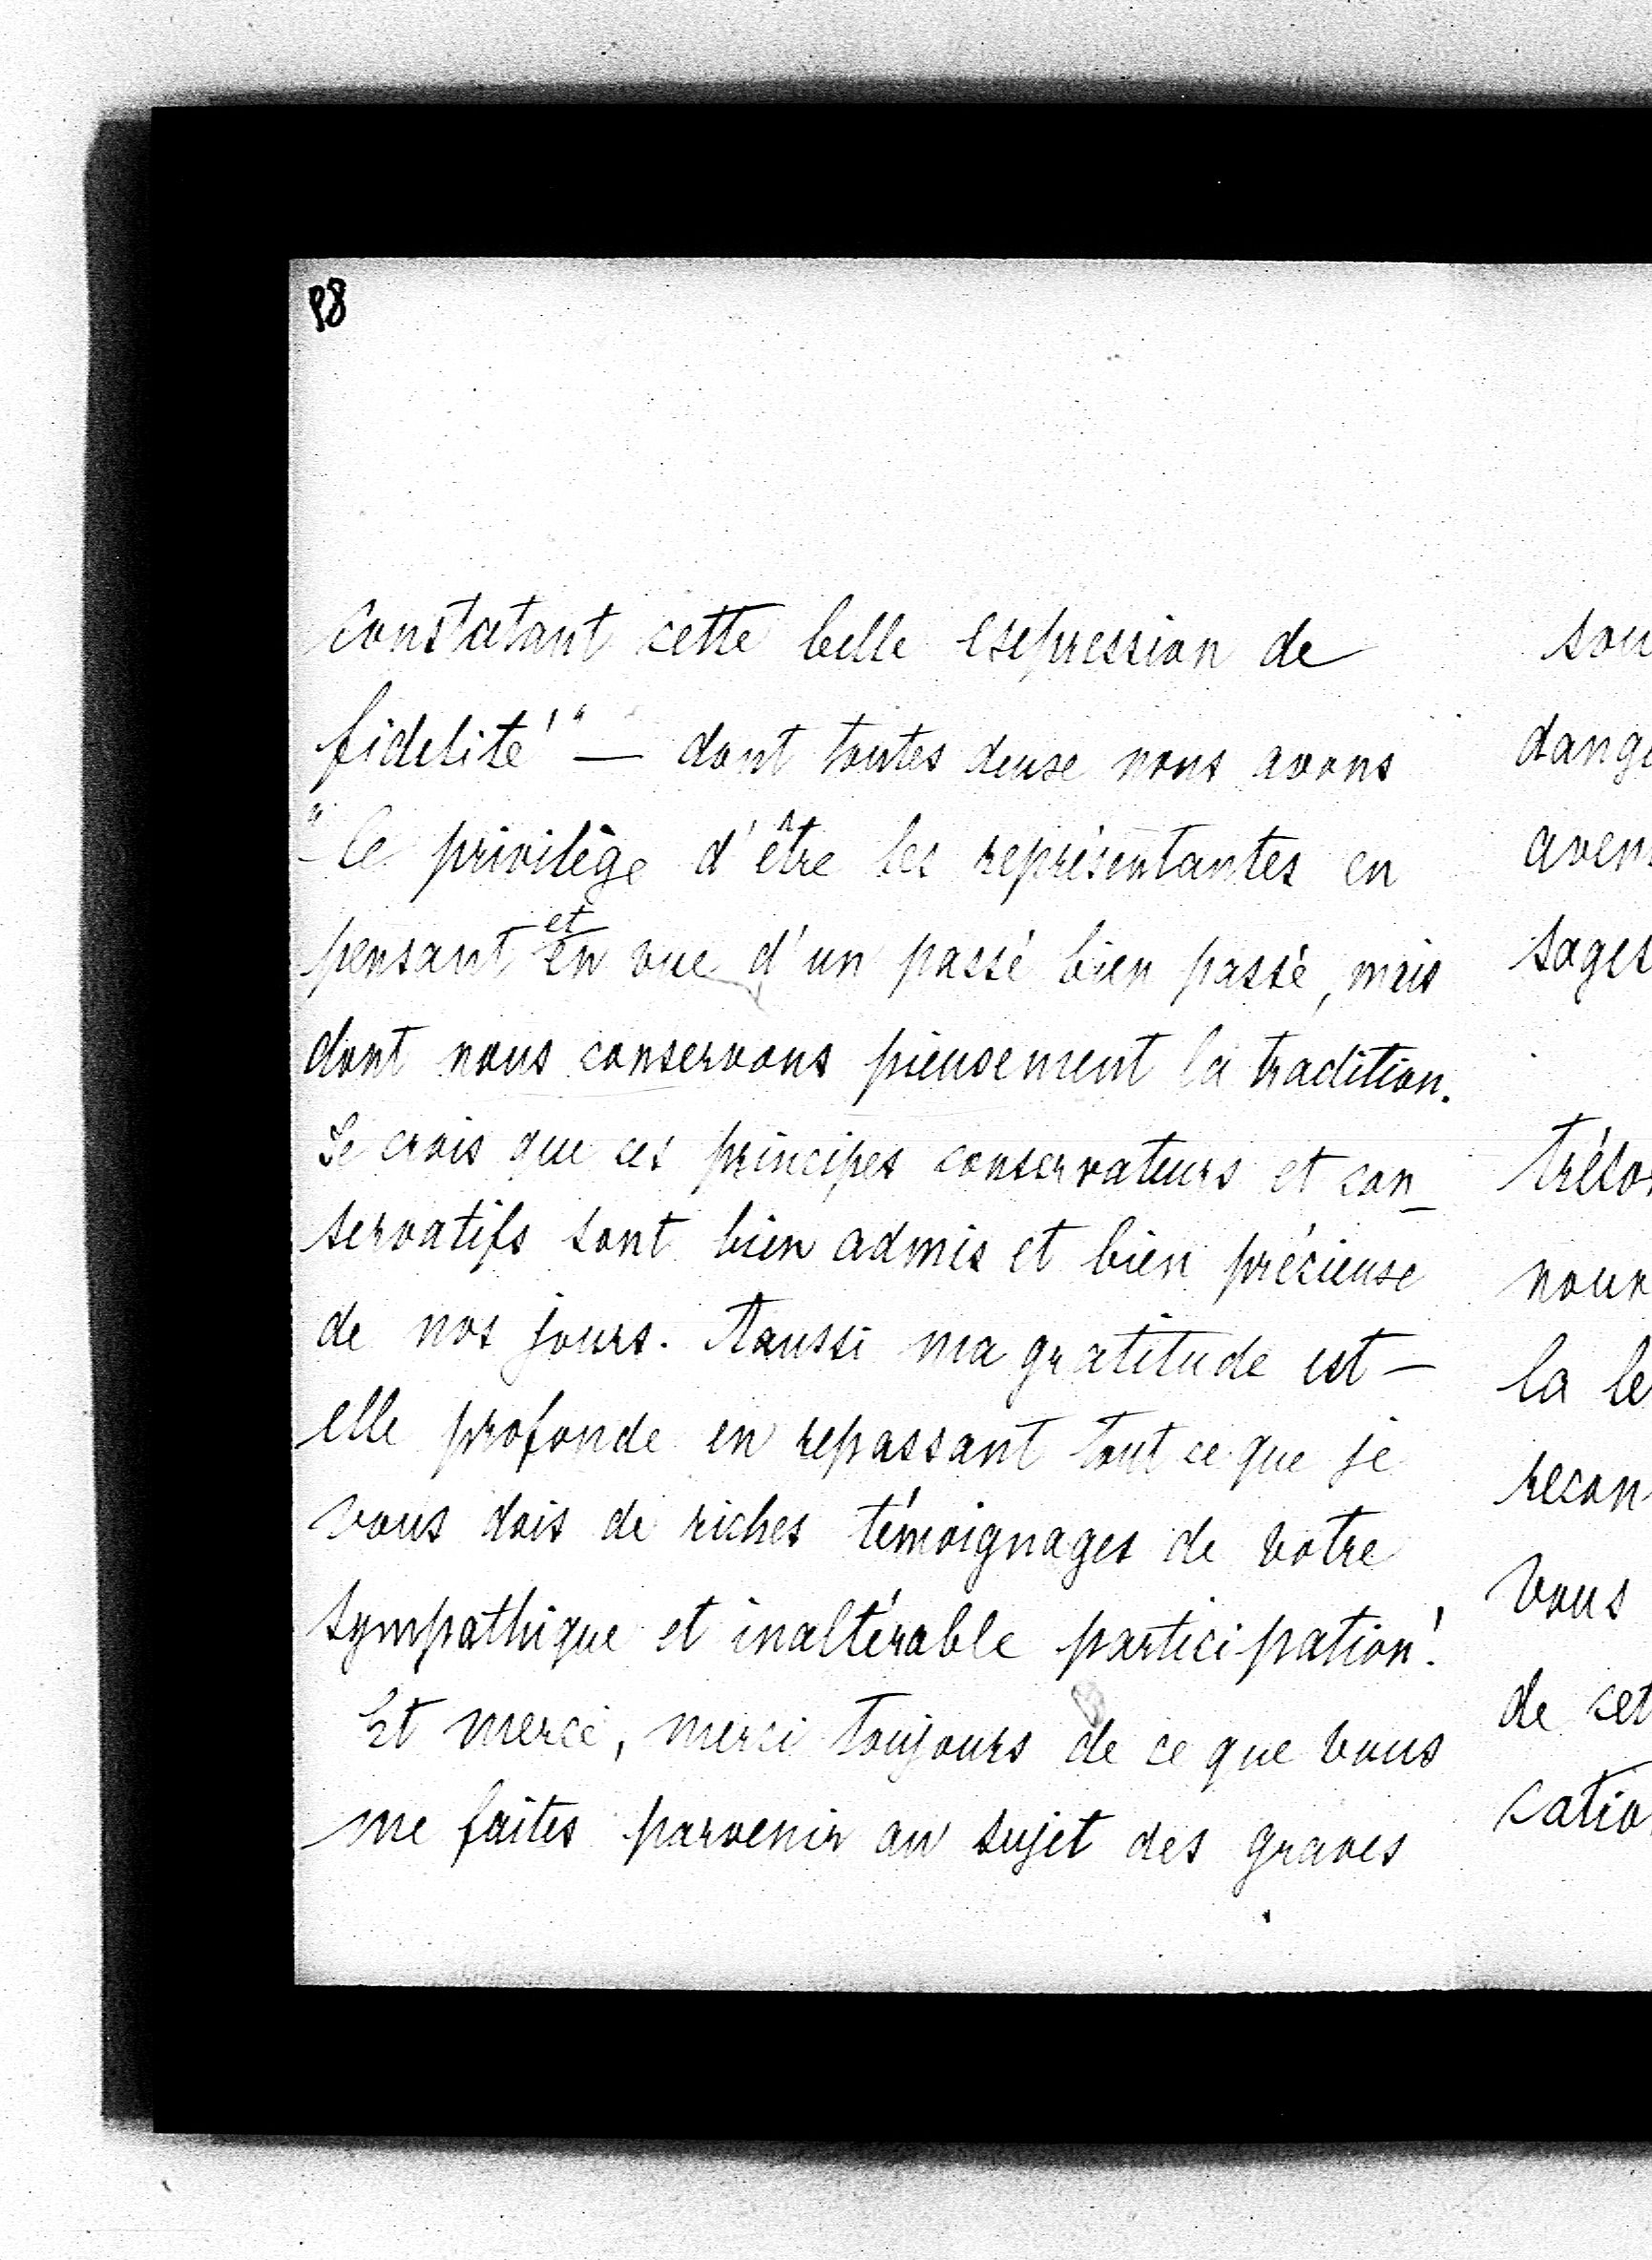 98
constatant cette belle expression de
fidelité!" — dont toutes deux nous avons
"le privilège d'être les représentantes en
pensant et en vue d'un passé bien passé, mais
dont nous conservons pieusement la tradition.
Je crois que ces principes conservateurs et con_
servatifs sont bien admis et bien précieux
de nos jours. Aussi ma gratitude est —
elle profonde en repassant tout ce que je
vous dois de riches témoignages de votre
sympathique et inaltérable participation!
Et merci, merci toujours de ce que vous
me faites parvenir au sujet des graves
sou
dange
aven
sages
trésor
nour
la le
recon
vous
de cet
catio